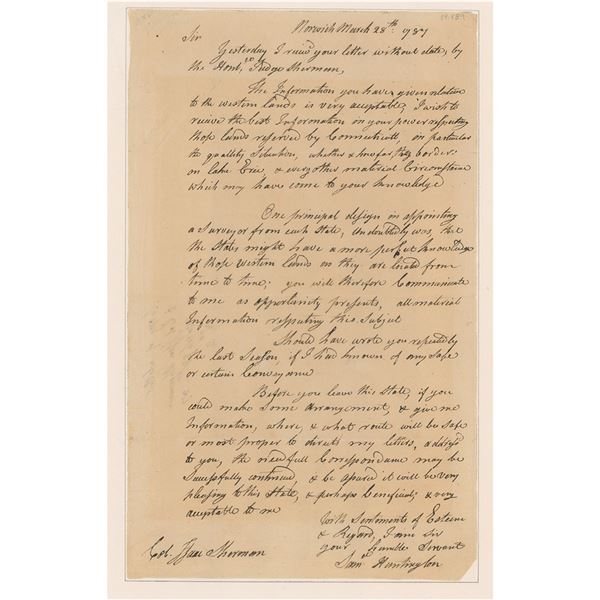 Norwich March 28th. 1787
Sir
Yesterday I receiv'd your letter without date, by
the Honble. Judge Sherman,
The Information you have given relative
to the western lands is very acceptable; I wish to
receive the best Information in your power respecting
those lands reserved by Connecticutt, in particular
the quallity, Situation, whether & how far they border
on lake Erie, & every other material Circumstance
which may have come to your knowledge
One principal design in appointing
a Surveyor from each State, undoubtedly was, that
the States might have a more perfect knowledge
of those western lands as they are located from
time to time; you will therefore Communicate
to me as opportunity presents, all material
Information respecting this Subject
Should have wrote you repeatedly
the last Season, if I had known of any safe
or certain Conveyance
Before you leave this State, if you
could make some arrangement, & give me
Information, where, & what route will be safe
or most proper to direct my letters, address'd
to you, the needfull Correspondance may be
Successfully continued, & be assured it will be very
pleasing to this State, & perhaps beneficial; & very
acceptable to me
With Sentiments of Esteem
& Regard, I am Sir
your humble Servant
Saml. Huntington
Col. Isaac Sherman